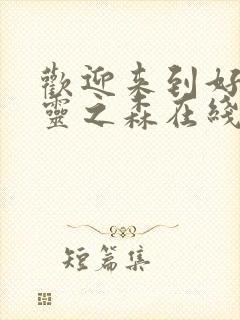 歡迎来到好
靈之森在綫
短篇集